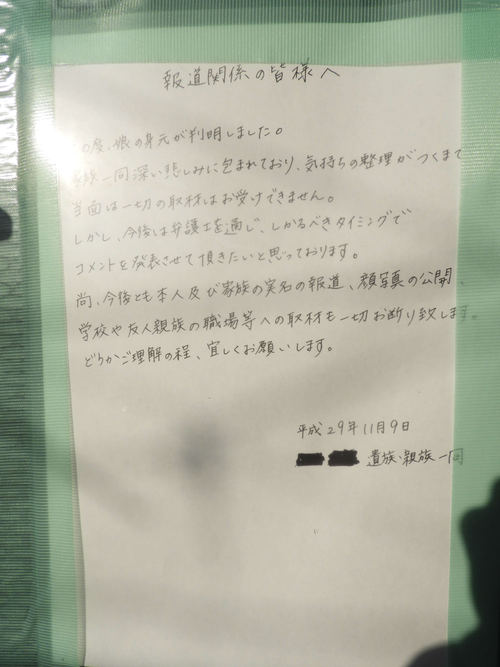 報道関係の皆様へ
の度、娘の身元が判明しました。
家族一同深い悲しみに包まれており、気持ちの整理がつくまで
当面は一切の取材はお受けできません。
しかし、今後は弁護士を通じ、しかるべきタイミングで
コメントを発表させて頂きたいと思っております。
尚、今後とも本人及び家族の実名の報道、顔写真の公開
学校や友人親族の職場等への取材も一切お断り致します。
どうかご理解の程、宜しくお願いします。
平成29年11月9日
遺族・親族一同